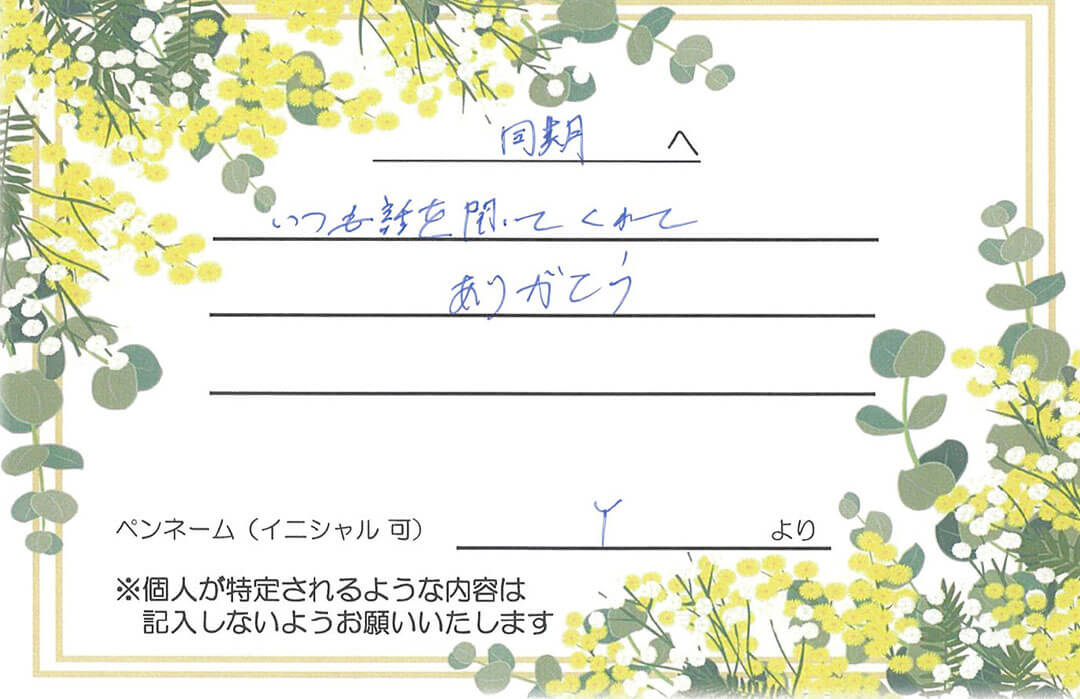 同期 へ
いつも話を聞いてくれて
ありがとう
ペンネーム（イニシャル 可） Y より
※個人が特定されるような内容は
記入しないようお願いいたします